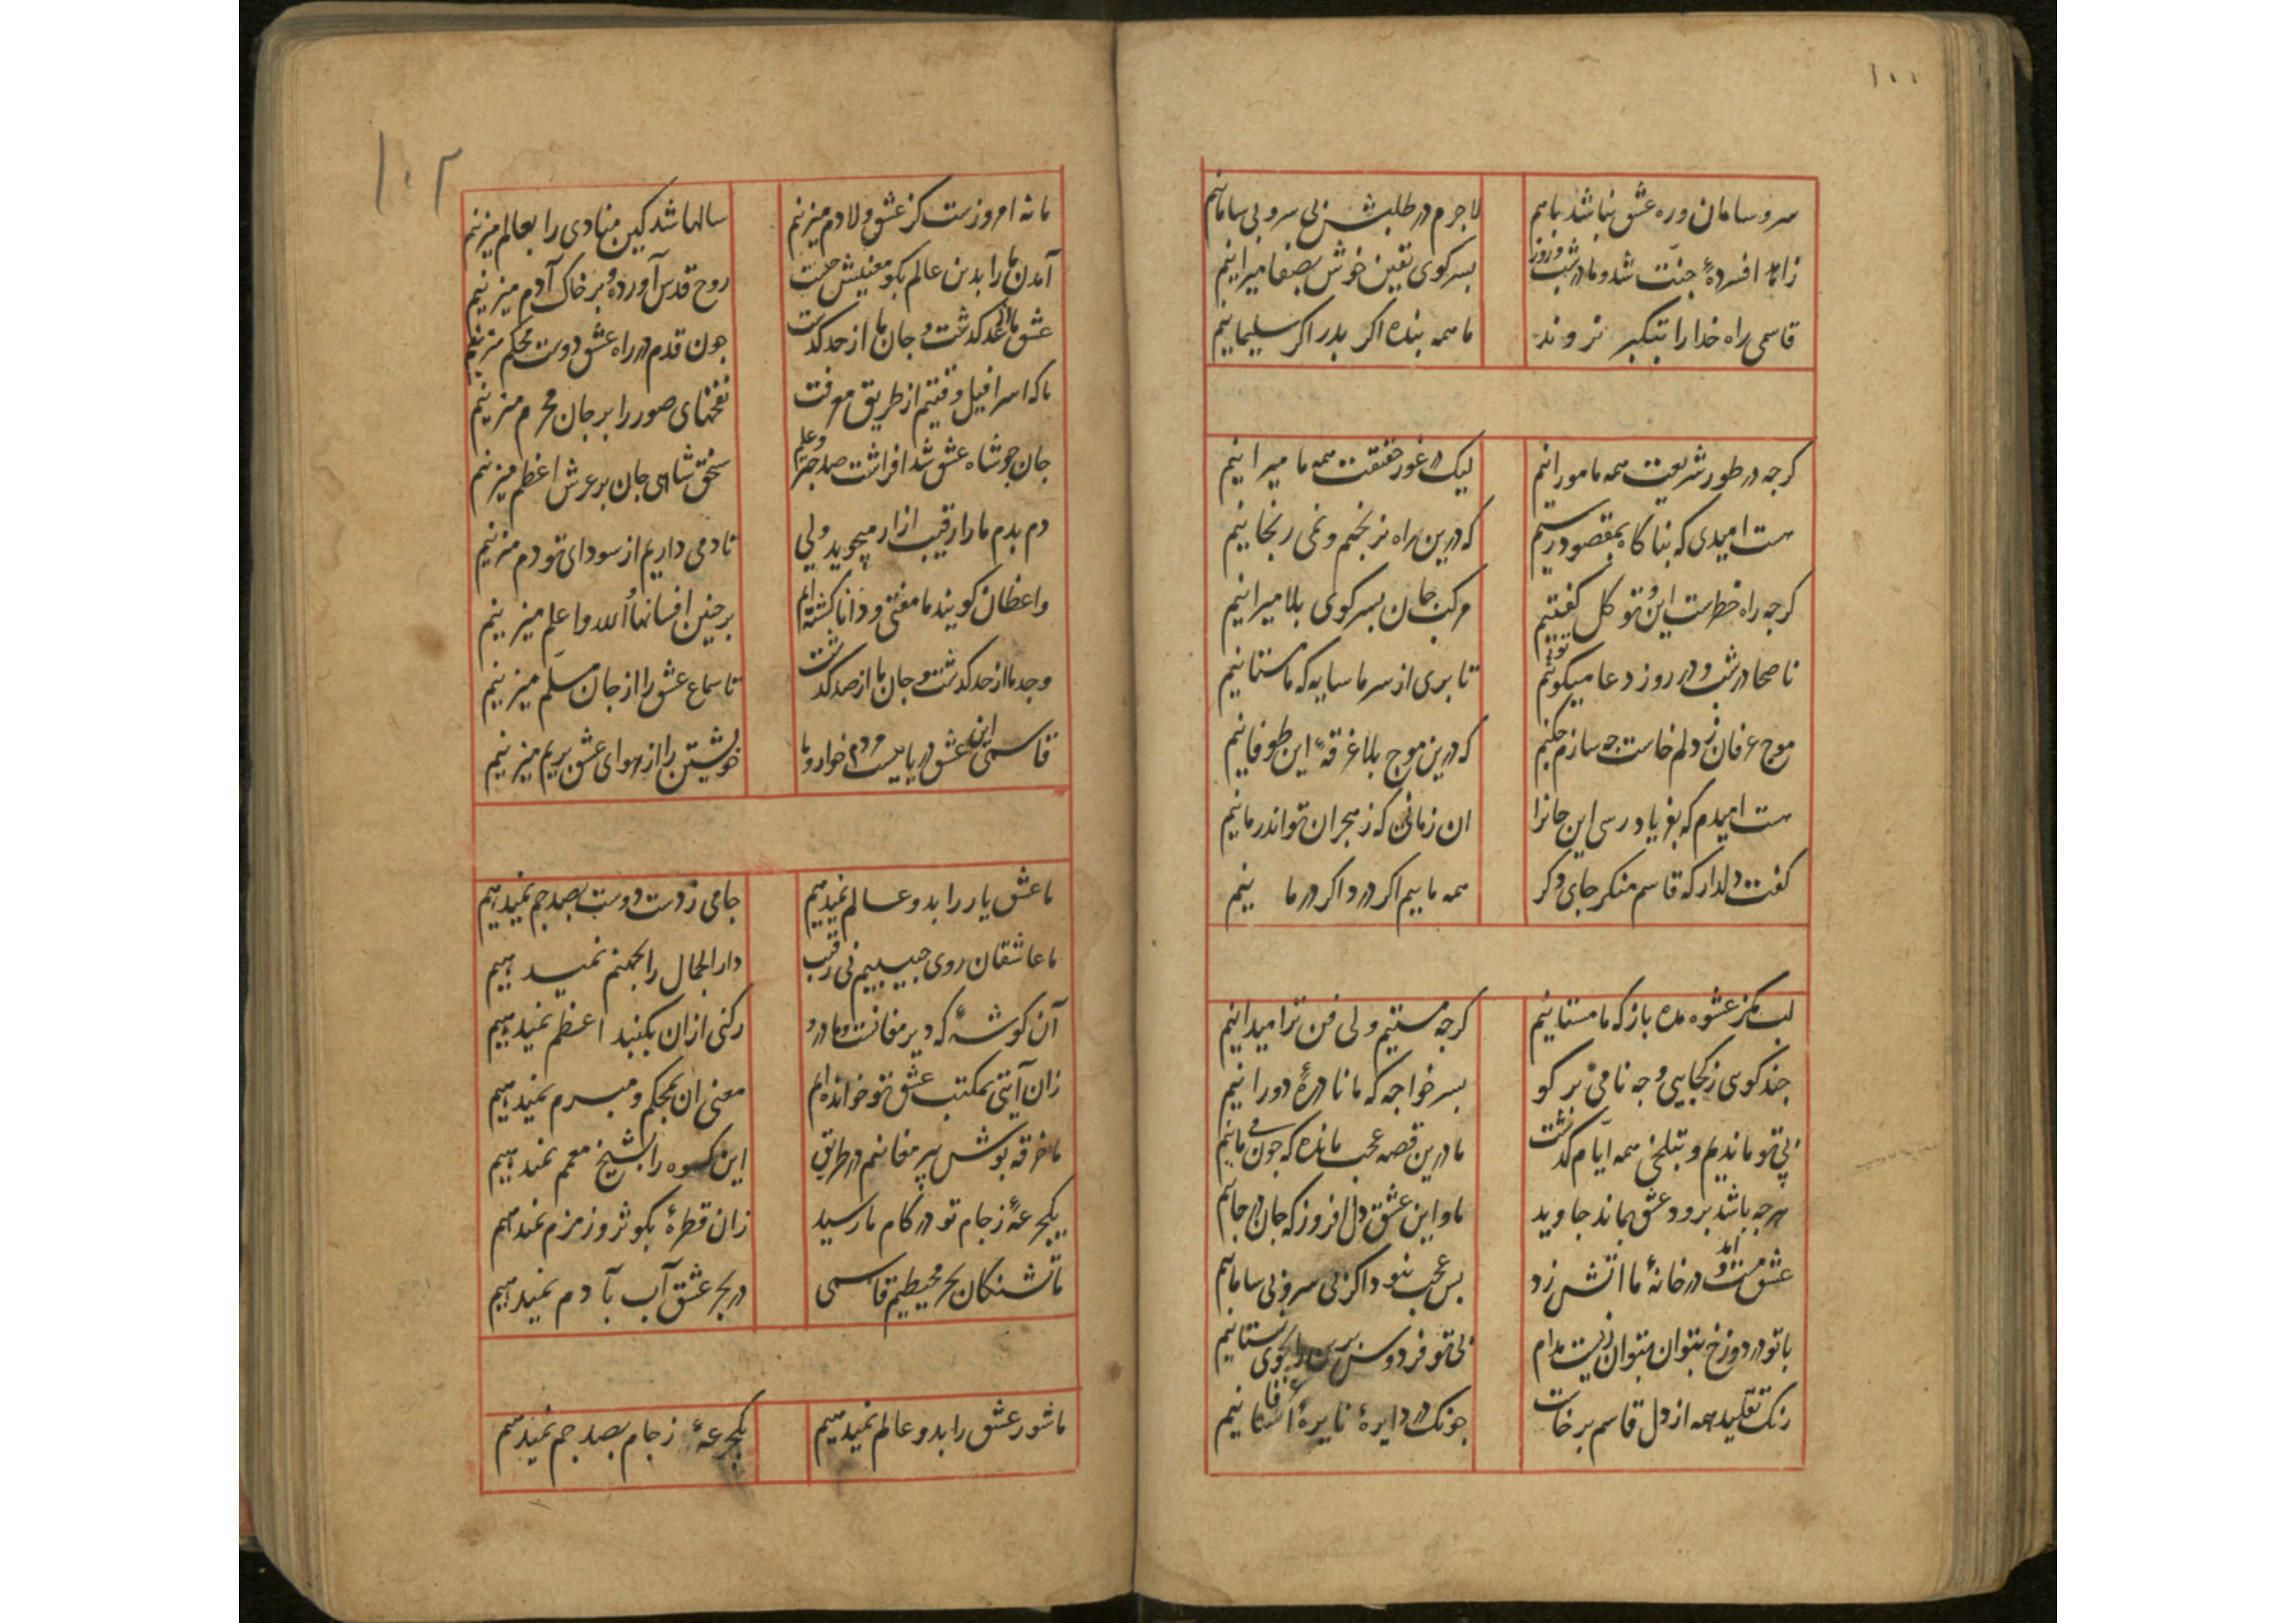 ۱۰۱
سر و سامان و ره عشق نباشد باهم لاجرم در طلبش بی سر و بی سامانیم
زاهد افسردهٔ جنّت شد و ما در شب و روز بسر کوی یقین خوش بصفا میرانیم
قاسمی راه خدا را بتکبر نروند ما همه بنده اکر بدر اکر سلیمانیم
کرچه در طور شریعت همه مامورانیم لیک در غور حقیقت همه ما میرانیم
هست امیدی که بناکاه بمقصود رسیم که درین راه نرنجیم و نمی رنجانیم
کرچه راه خطرست این و توکل کفتیم مرکب جان بسر کوی بلا میرانیم
ناصحا در شب و در روز دعا میکوئیم تا بری از سر ما سایه که ما مستانیم
موج عرفان ز دلم خاست چه سازم چکنم که درین موج بلا غرقهٔ این طوفانیم
هست امیدم که بفریاد رسی این جانرا ان زمانی که ز هجران تو اندر مانیم
کفت دلدار که قاسم منکر جای دکر همه ماییم اکر درد اکر درمانیم
لب مکز عشوه مده باز که ما مستانیم کرچه مستیم ولی فن ترا میدانیم
چند کوی ز کجایی و چه نامی برکو بسر خواجه که ما نادرهٔ دورانیم
بی تو ماندیم و بتلخی همه ایّام کذشت ما درین قصه عجب مانده که چون می مانیم
هرچه باشد برود عشق بماند جاوید ما و این عشق دل افروز که جان در جانیم
عشق مست آمد و در خانهٔ ما اتش زد بس عجب نبود اکر بی سر و بی سامانیم
با تو در دوزخ بتوان بتوان زیست مدام بی تو فردوس برین را بجوی نستانیم
رنک تقلید همه از دل قاسم برخاست چونک در دایرهٔ نایرهٔ افتانیم
۱۰۲
ما نه امروزست کز عشق و لا دم میزنیم سالها شد کین منادی را بعالم میزنیم
آمدن ما را بدین عالم بکو معنیش چیست روح قدس آورده و بر خاک آدم میزنیم
عشق ما از حد کذشت و جان ما از حد کذشت چون قدم در راه عشق دوست محکم میزنیم
ما که اسرافیل وقتیم از طریق معرفت نفخهای صور را بر جان محرم میزنیم
جان چو شاه عشق شد افراشت صد چتر و علم سنجق شاهی جان بر عرش اعظم میزنیم
دم بدم ما را رقیب ازار میجوید ولی تا دمی داریم از سودای تو دم میزنیم
واعظان کویند ما مفتی و دانا کشته ایم بر چنین افسانها الله و اعلم میزنیم
وجد ما از حد کذشت و جان ما از صد کذشت تا سماع عشق را از جان مسلّم میزنیم
قاسمی این عشق دریاییست مردم خوار و ما خویشتن را از هوای عشق بریم میزنیم
ما عشق یار را بدو عالم نمیدهیم جامی ز دست دوست بصد جم نمیدهیم
ما عاشقان روی حبیبیم نی رقیب دار الجمال را بجهنم نمیدهیم
آن کوشهٔ که دیر مغانست و ما درو رکنی ازان بکنبد اعظم نمیدهیم
زان آیتی بمکتب عشق تو خوانده ایم معنی ان بمحکم و مبرم نمیدهیم
ما خرقه پوش پیر مغانیم در طریق این کسوه را بشیخ معمم نمیدهیم
یکجرعهٔ ز جام تو در کام ما رسید زان قطرهٔ بکوثر و زمزم نمیدهیم
ما تشنکان بحر محیطیم قاسمی در بحر عشق آب بآدم نمیدهیم
ما شور عشق را بدو عالم نمیدهیم یکجرعهٔ ز جام بصد جم نمیدهیم